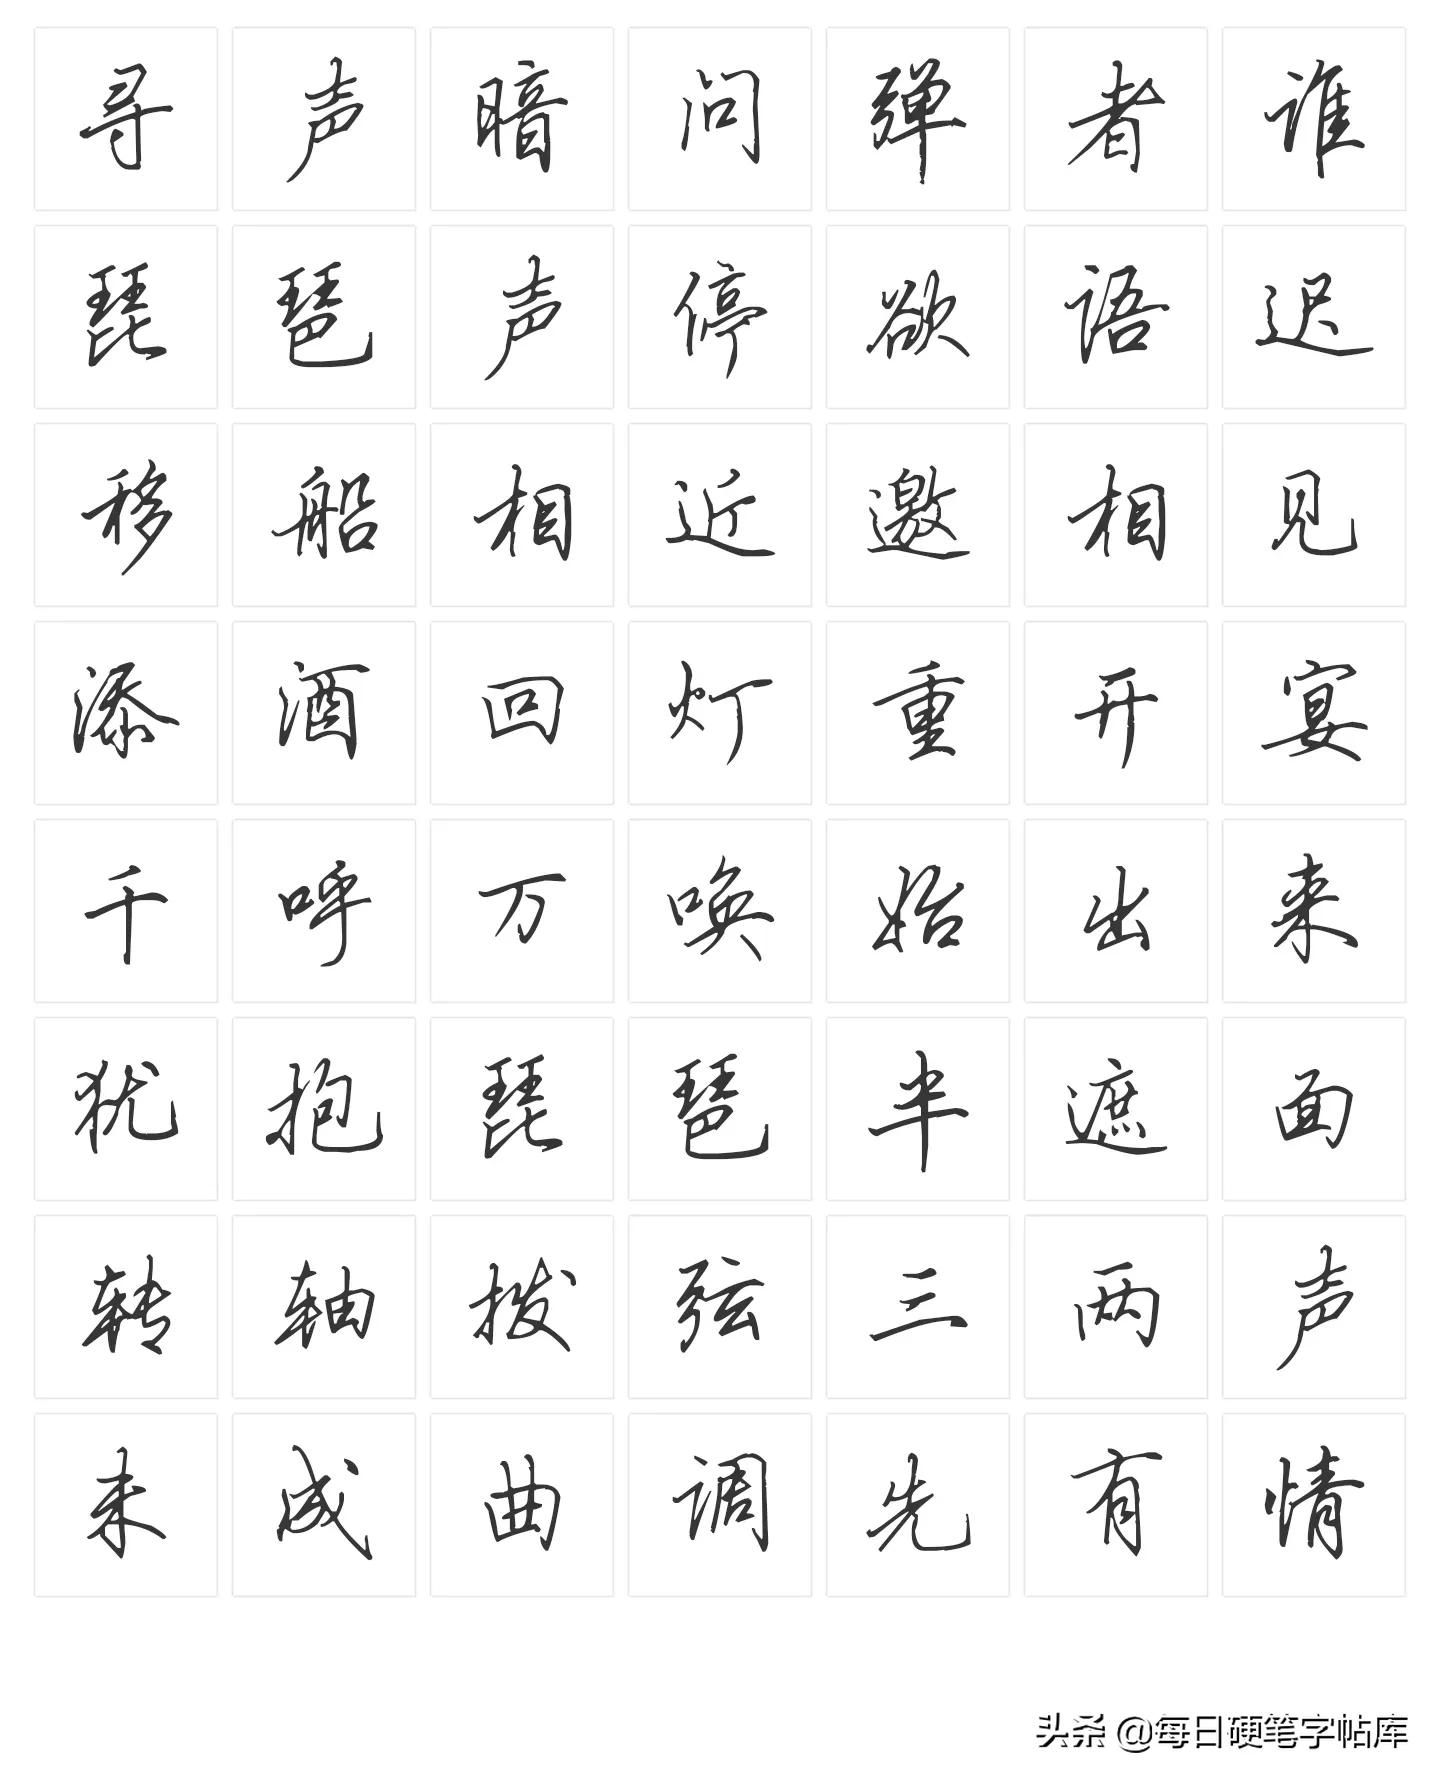 寻声暗问弹者谁
琵琶声停欲语迟
移船相近邀相见
添酒回灯重开宴
千呼万唤始出来
犹抱琵琶半遮面
转轴拨弦三两声
未成曲调先有情
头条 @每日硬笔字帖库